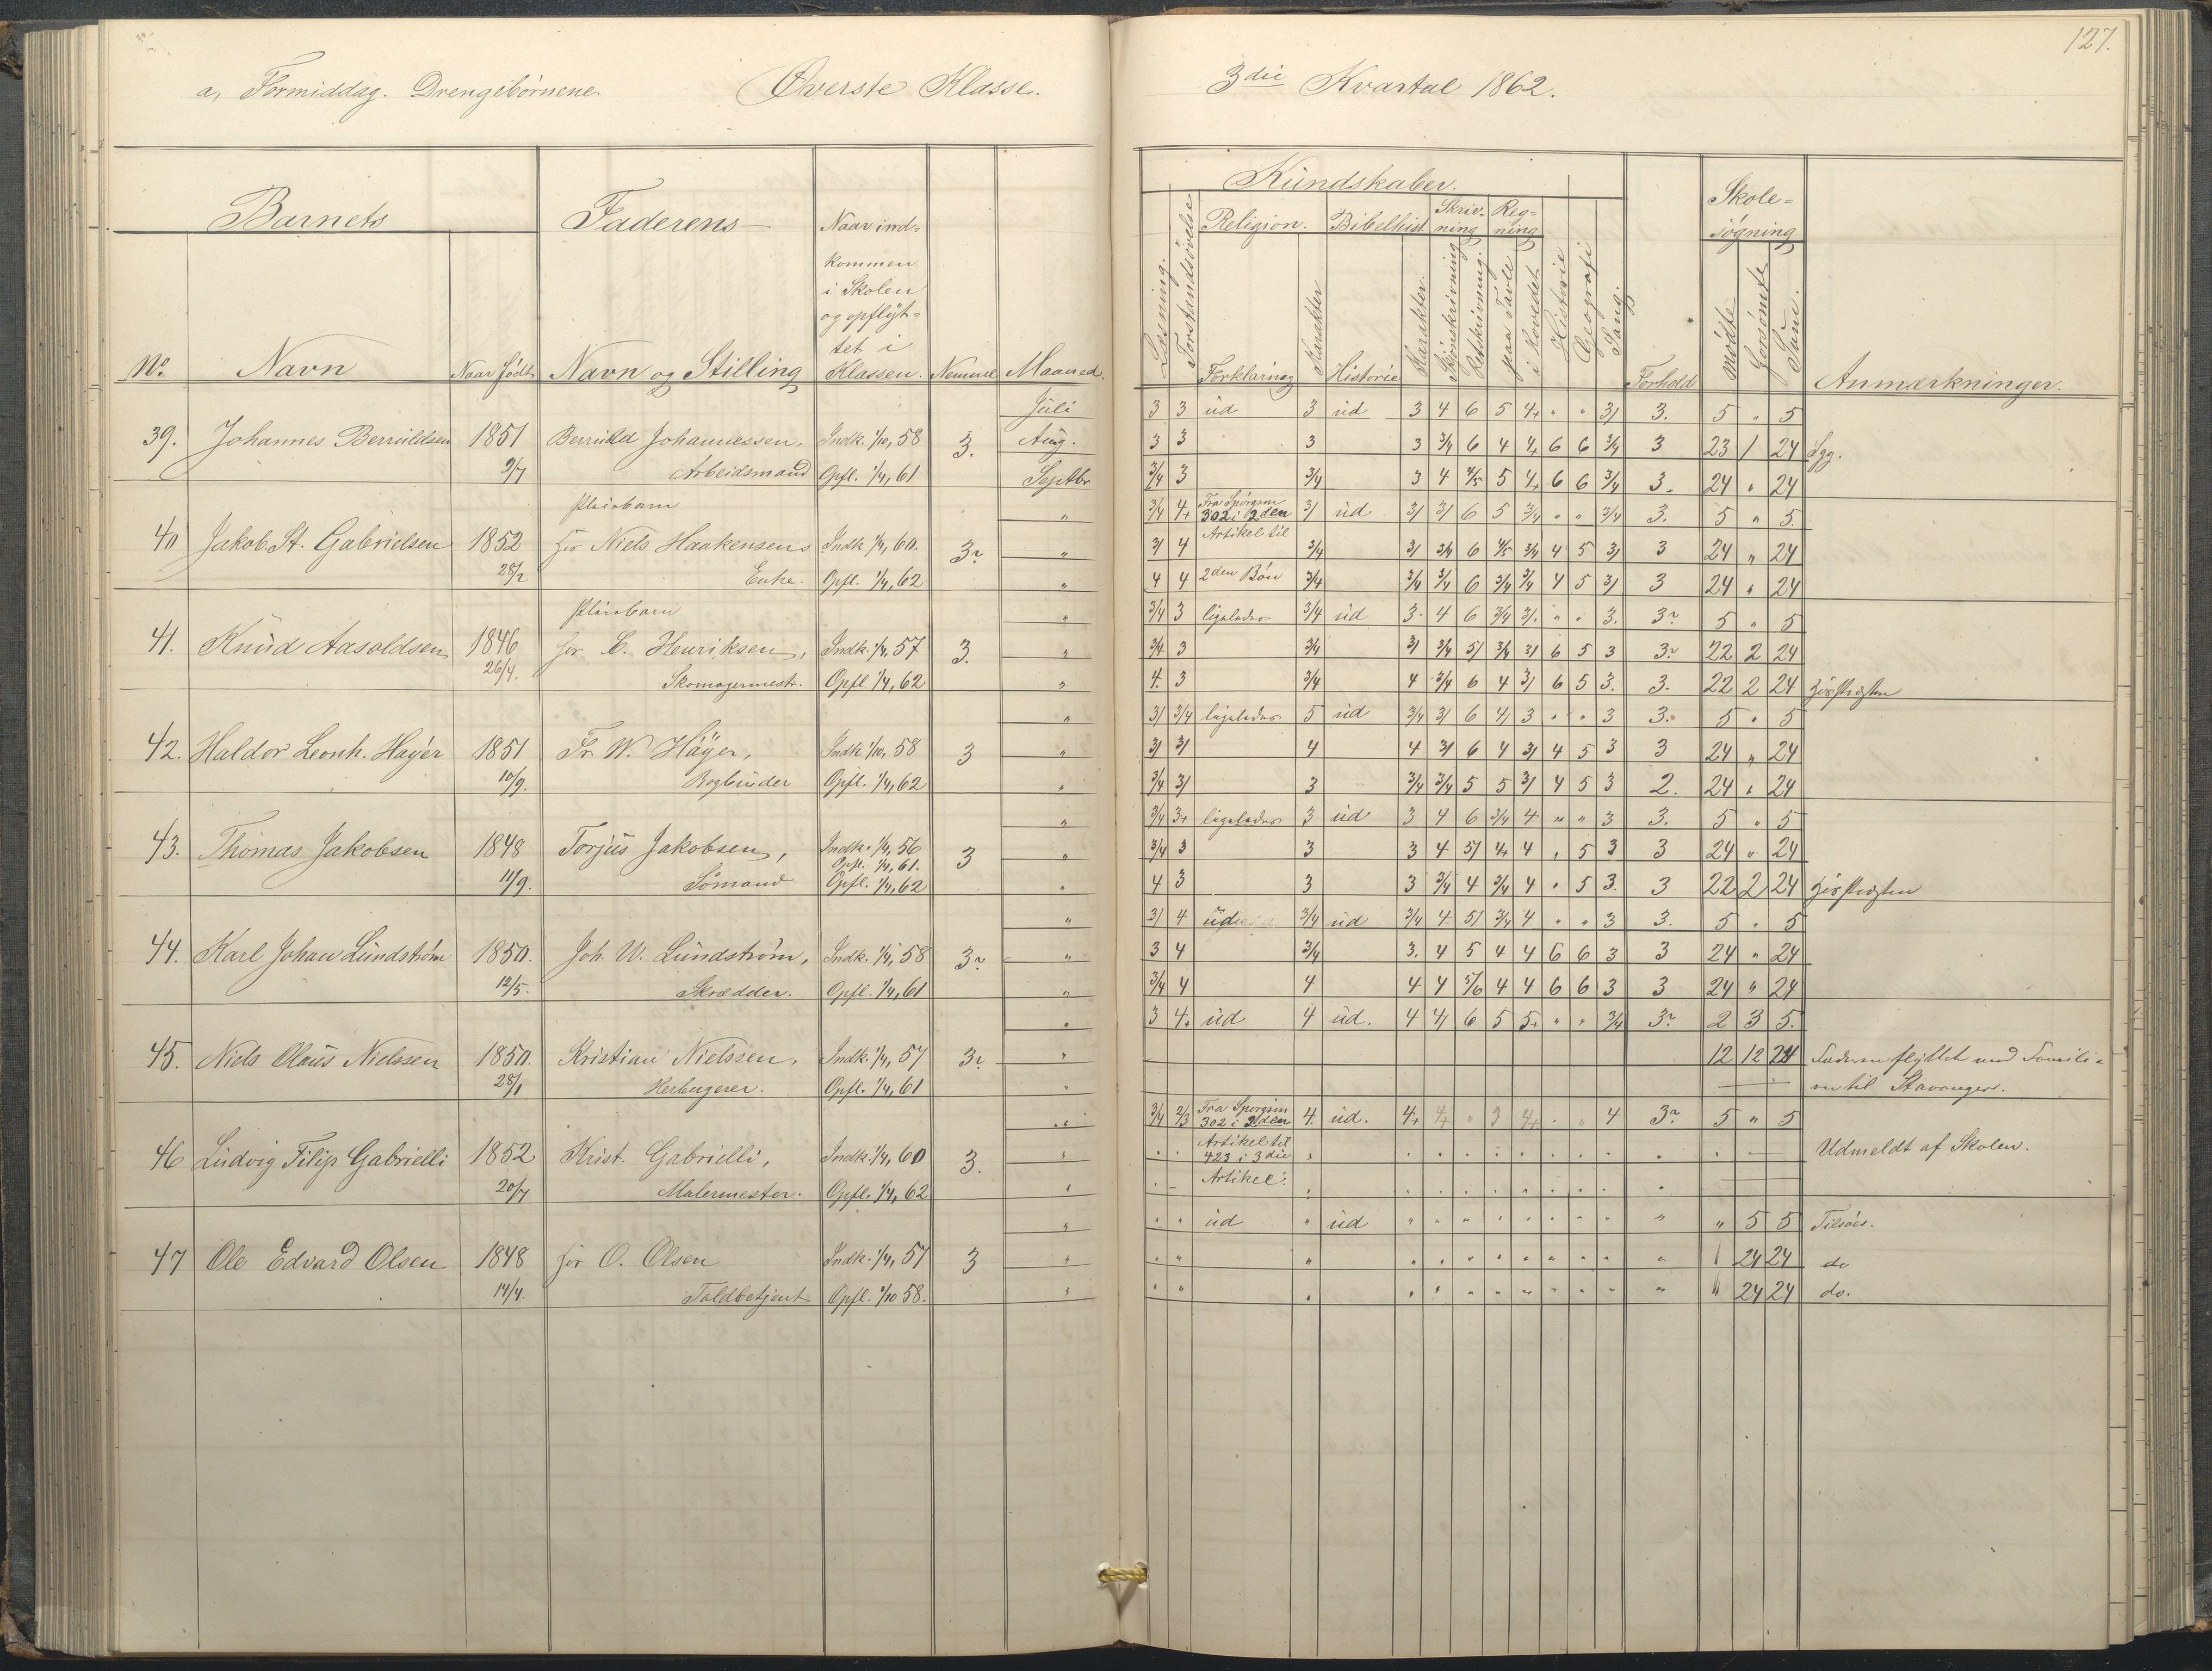 a, Formiddag. Drengebørnene. Øverste Klasse. 3die Kvartal 1862. 127.
Barnets Faderens
No. Navn Naar født Navn og Stilling Naar ind- kommen i Skolen og opflyt- tet i Klassen. Nemme Maaned.
Kundskaber.
Læsning. Forstandsøvelse Religion. Forklaring Karakter Bibelhist. Historie Karakter. Skriv- ning Skjønskrivning Retskrivning. Reg- ning paa Tavle i Hovedet Historie Geografi Sang. Forhold Skole- søgning Mødte Forsømte Sum. Anmærkninger.
Juli 3 3 ud 3 ud 3 4 6 5 4+ " " 3/ 3. 5 " 5
39. Johannes Berruldsen 1851 Berruld Johannessen, Indk. 1/10, 58 3. Aug. 3 3 3 3 3/4 6 4 4+ 6 6 3/4 3 23 1 24 Syg.
9/7 Arbeidsmand Opfl. 1/4, 61 Septbr 3/4 3 3/4 3 4 4/5 5 4+ 6 6 3/4 3. 24 " 24
Pleiebarn " 3/4 4+ Fra Spørgsm 302 i 2den 3/ ud 3/ 3/ 6 5 3/4 " " 3/4 3. 5 " 5.
40 Jakob St. Gabrielsen 1852 hos Niels Haakensens Indk 1/4, 60. " 3/ 4 Artikel til 3/4 3/ 3/4 6 4/5 3/4 4 5 3/ 3 24 " 24
28/2 Enke. Opfl. 1/4, 62 " 4 4 2den Bøn 3/4 3/4 3/4 6 3/4 3/4 4 5 3/ 3 24 " 24
Pleiebarn " 3/4 3 ligeledes 3/4 ud 3. 4 6 3/4 3/. " " 3. 5 " 5
41. Knud Aasoldsen 1846 hos C. Henriksen, Indk. 1/4, 57 3. " 3/4 3 3/4 3/ 3/4 5/ 3/4 3/ 6 5 3 22 2 24
26/4. Skomagermestr. Opfl 1/4, 62 " 4. 3 3/4 4 3/4 6 4 3/ 6 5 3. 3. 22 2 24
" 3/ 3/4 ligeledes 5 ud 3/4 3/ 6 4/ 3 " " 3 3. 5 " 5
42. Haldor Leonh. Høyer 1851 Fr. W. Høyer, Indk 1/10, 58 3 " 3/ 3/ 4 4 3/ 6 4 3/ 4 5 3 3 24 " 24
10/9. Bogbinder Opfl. 1/4, 62 " 3/4 3/ 3 3/4 3/4 5 5 3/ 4 5 3 2. 24 " 24
" 3/4 3+ ligeledes 3 ud 3 4 6 3/4 4 " " 3 3. 5 " 5
43. Thomas Jakobsen 1848 Torjus Jakobsen, Indk. 1/4, 56 3 " 3/4 3 3 3 4 5/ 4+ 4 " 5 3 3 24 " 24
Opfl. 1/4, 61.
11/9. Sømand Opfl. 1/4, 62 " 4 3 3 3 3/4 4 3/4 4 " 5 3. 3 22 2 24
" 3/ 4 ud 3/4 ud 3/4 4 5/ 3/4 4 " " 3 3. 5 " 5
44. Karl Johan Lundstrøm 1850. Joh. W. Lundstrøm, Indk. 1/4, 58 " 3 4 3/4 3. 4 5 4 4 6 6 3 3 24 " 24
12/5. Skrædder. Opfl. 1/4, 61 " 3/4 4 4 4 4 5/6 4 4 6 6 3 3 24 " 24
" 3 4+ ud 4 ud. 4 4/ 6 5 5+ " " 3/4 2 3 5.
45. Niels Olaus Nielssen 1850. Kristian Nielssen, Indk. 1/4, 57 " 12 12 24 Faderen flyttet med Famili-
28/1 Herbergerer. Opfl. 1/4, 61 " en til Stavanger.
" 3/4 2/3 Fra Spørgsm 302 i 2den 4. ud. 4+ 4+ " 3 4+ " " 4 5 " 5
46 Ludvig Filip Gabrielli 1852 Krist. Gabrielli, Indk. 1/4, 60 3. " Artikel til 423 i 3die Udmeldt af Skolen.
20/7 Malermester. Opfl. 1/4, 62 " Artikel.
" " " ud " ud " " " " " " " " " " 5 5 Tilsøes.
47 Ole Edvard Olsen 1848 hos O. Olsen Indk. 1/4, 57 3 " " " " " " " " " " " " " 24 24 do
14/4. Toldbetjent Opfl. 1/10 58. " " " " " " " " " " " " " " " 24 24 do.